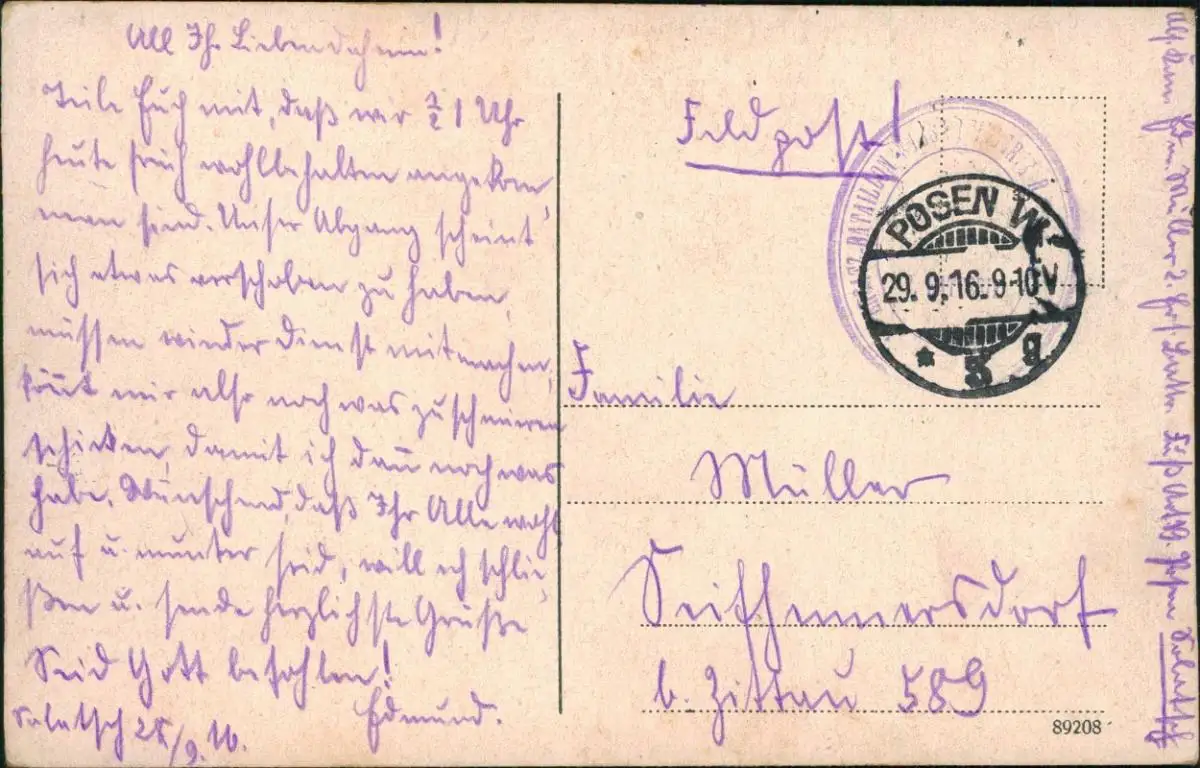 All Ihr Lieben daheim!
Teile Euch mit, daß wir ½ 1 Uhr
heute früh wohlbehalten angekom-
men sind. Unser Abgang scheint
sich etwas verschoben zu haben,
müssen wieder Dienst mitmachen,
könnt mir also noch was zu schmieren
schicken, damit ich dann noch was
habe. Wünschend, daß Ihr Alle wohl
auf u. munter seid, will ich schlie-
ßen u. sende herzlichste Grüße
Seid Gott befohlen!
Edmund.
Solatsch 28/9.16.
Feldpost!
BATAILLON
POSEN W.
29.9.16.9-10V
* 5 g
Familie
Müller
Seifhennersdorf
b. Zittau 589
89208
Abs. Kan. Edm. Müller 2. Ers. Battr. Fuß Art. Posen Solatsch